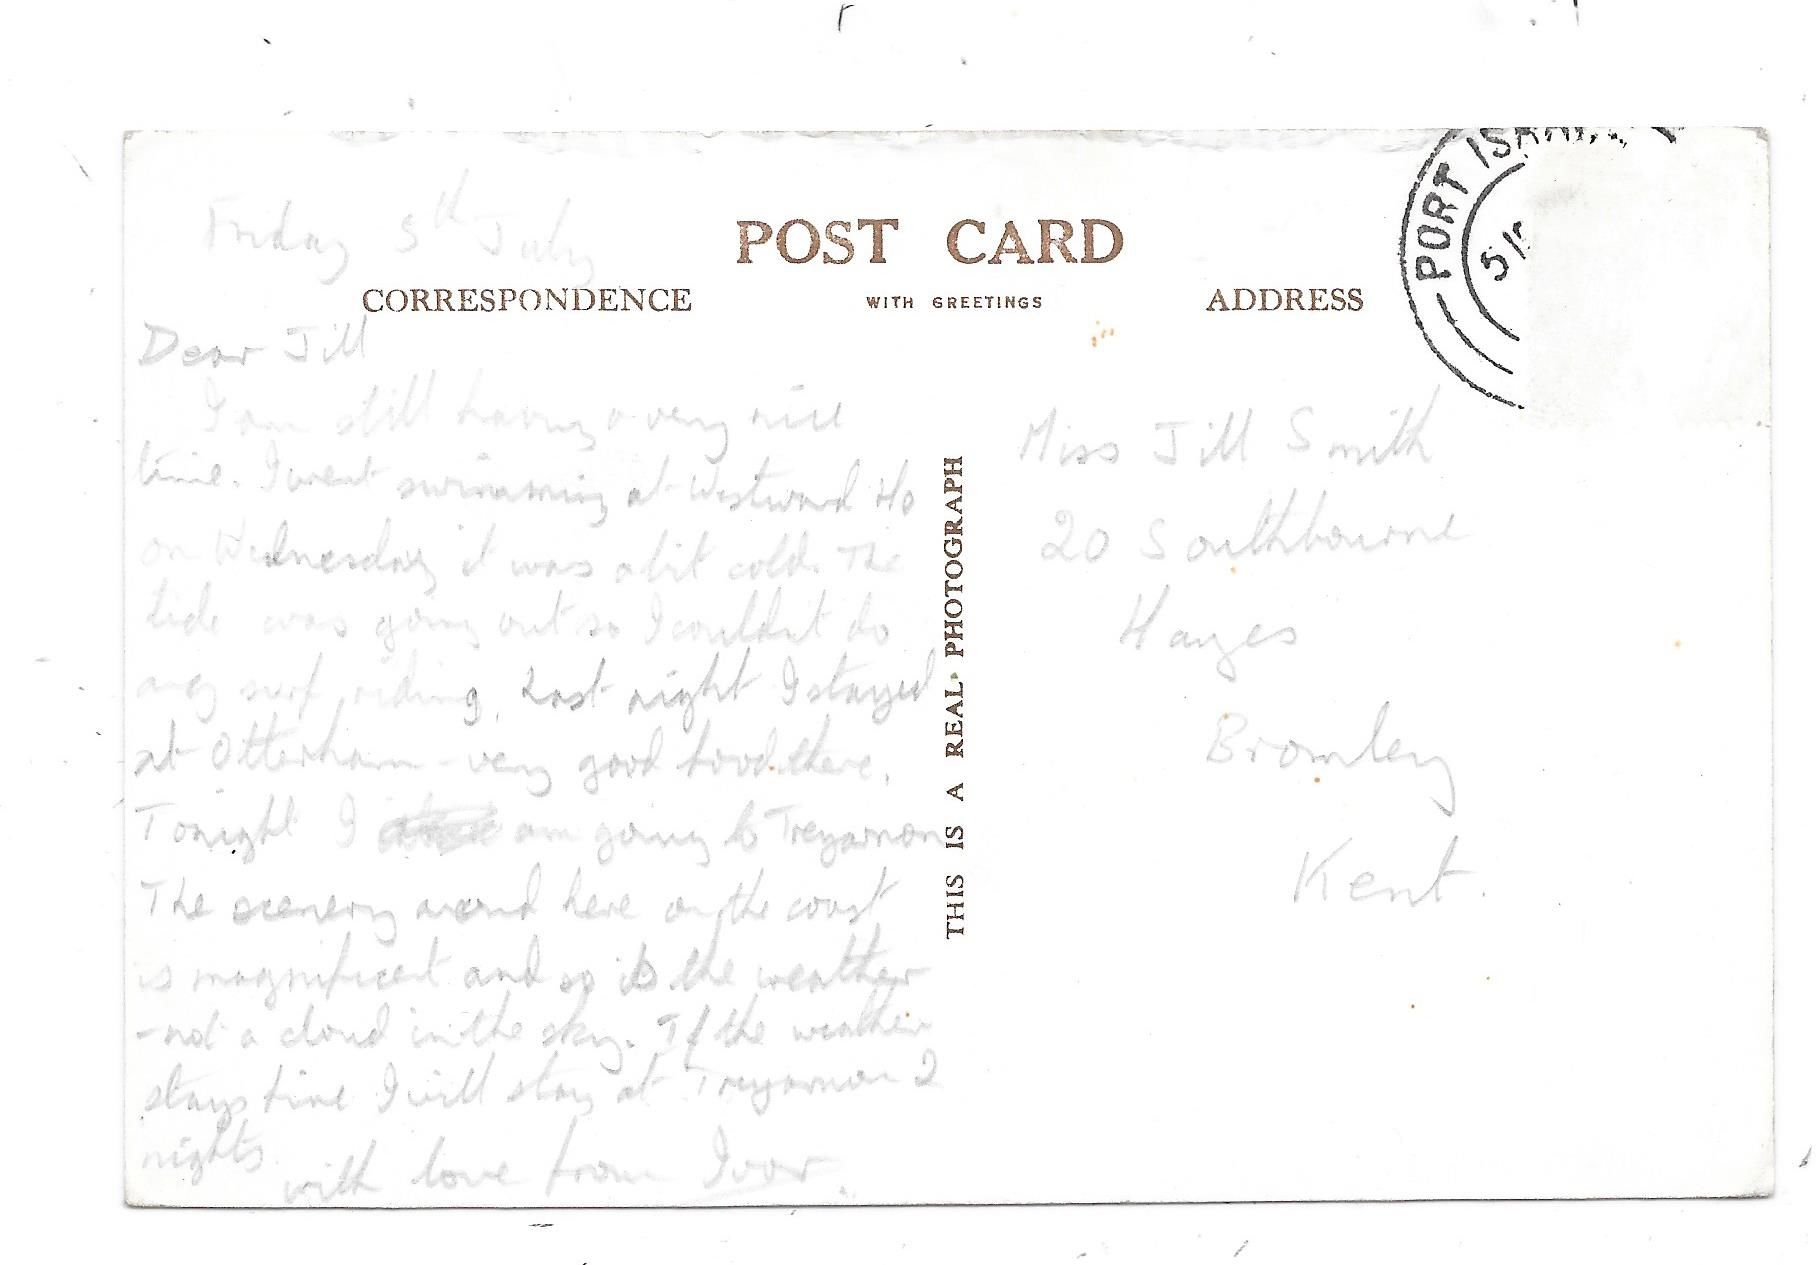 Friday 5th July
POST CARD
CORRESPONDENCE
WITH GREETINGS
ADDRESS
PORT ISAAC
5/
Dear Jill
I am still having a very nice
time. I went swimming at Westward Ho
on Wednesday it was a bit cold. The
tide was going out so I couldn't do
any surf riding. Last night I stayed
at Otterham - very good food there.
Tonight I am going to Treyarnon
The scenery around here on the coast
is magnificent and so is the weather
- not a cloud in the sky. If the weather
stays fine I will stay at Treyarnon 2
nights
with love from Ivor.
THIS IS A REAL PHOTOGRAPH
Miss Jill Smith
20 Southbourne
Hayes
Bromley
Kent.